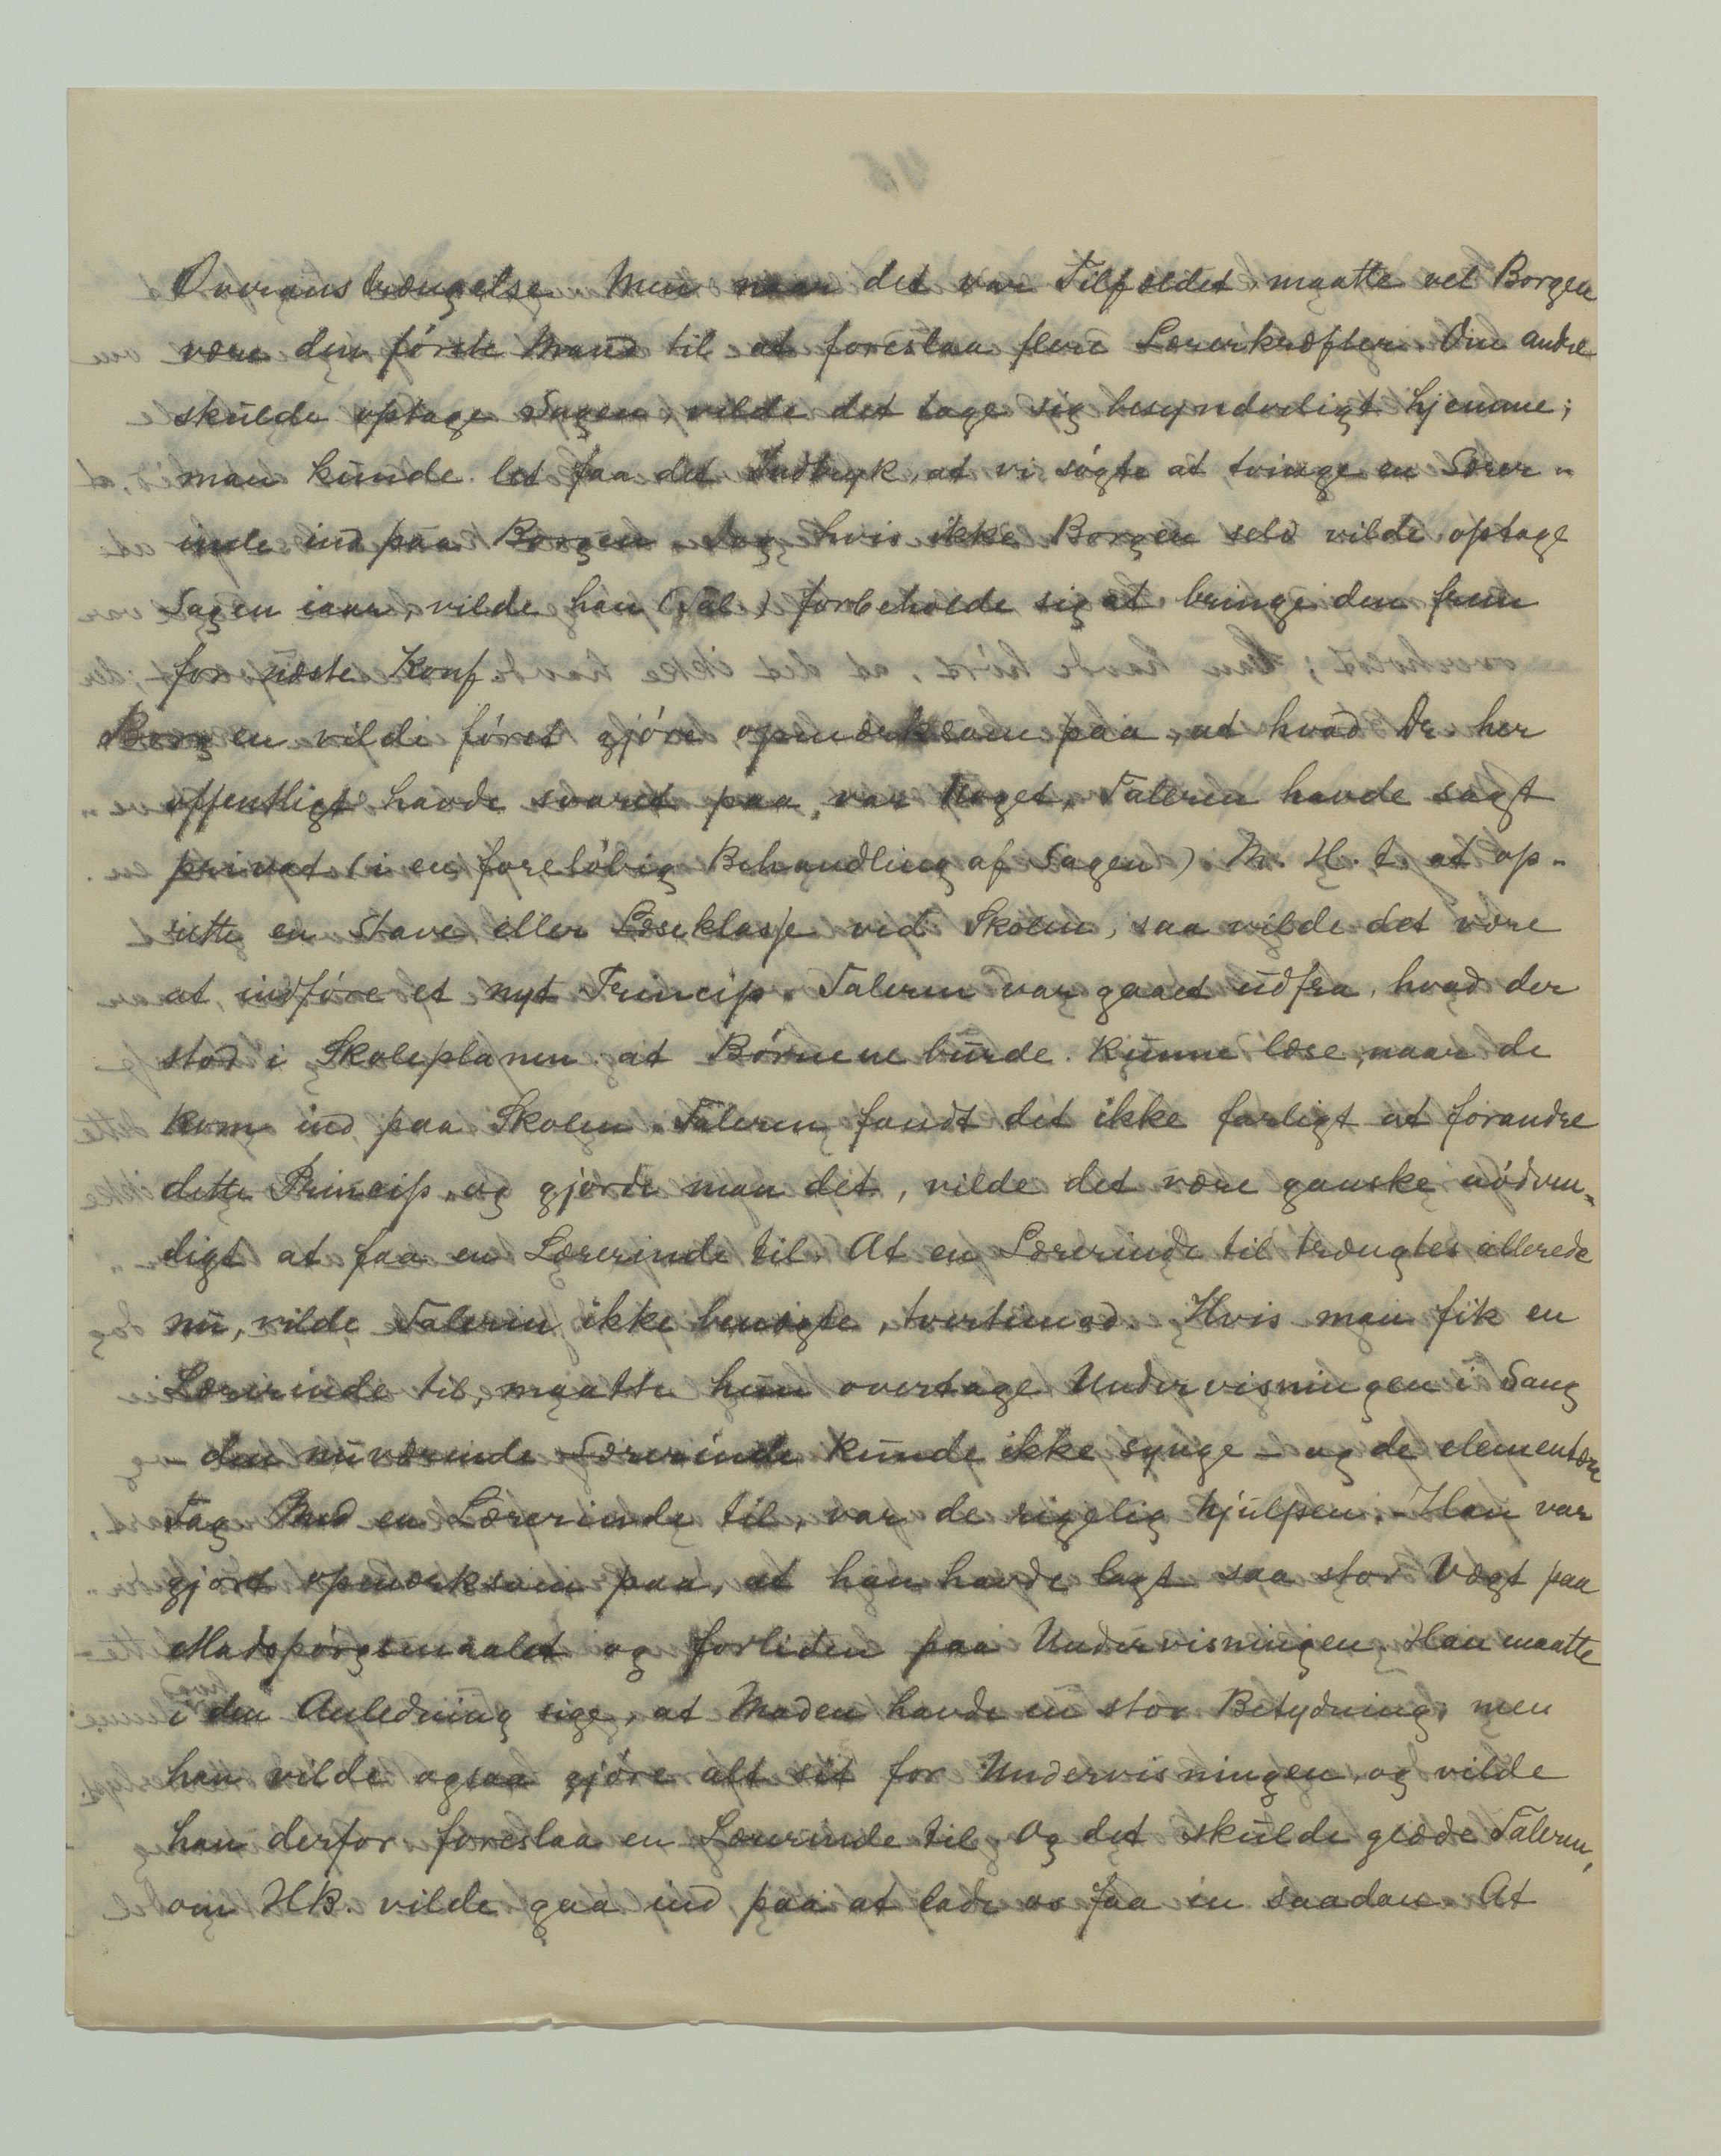 Overanstrængelse. Men naar det var Tilfældet, maatte vel Borgen
være den förste Mand til at foreslaa flere Lærerkræfter. Om andre
skulde optage Sagen, vilde det tage sig besynderligt hjemme;
man kunde let faa det Indtryk, at vi søgte at tvinge en Lærer-
inde ind paa Borgen. Dog hvis ikke Borgen selv vilde optage
Sagen iaar, vilde han (Tal.) forbeholde sig at bringe den frem
for næste Konf.
Borgen vilde först gjöre opmærksom paa, at hvad Dr. her
offentligt havde svaret paa, var Noget, Taleren havde sagt
privat (i en forelöbig Behandling af Sagen) M. H. t. at op-
rette en Stave eller Læseklasse ved Skolen, saa vilde det være
at indföre et nyt Princip. Taleren var gaaet ud fra, hvad der
stod i Skoleplanen at Börnene burde kunne læse, naar de
kom ind paa Skolen. Taleren fandt det ikke farligt at forandre
dette Princip, og gjorde man det, vilde det være ganske nödven-
digt at faa en Lærerinde til. At en Lærerinde til trængtes allerede
nu, vilde Taleren ikke benægte, tvertimod. Hvis man fik en
Lærerinde til, maatte hun overtage Undervisningen i Sang
- den nuværende Lærerinde kunde ikke synge - og de elementære
Fag. Med en Lærerinde til, var de rigelig hjulpen. - Han var
gjort opmærksom paa, at han havde lagt saa stor Vægt paa
Madspörgsmaalet og forliden paa Undervisningen. Han maatte
i den Anledning sige, at Maden havde en stor Betydning, men
han vilde ogsaa gjöre alt sit for Undervisningen, og vilde
han derfor foreslaa en Lærerinde til. Og det skulde glæde Taleren,
om HB. vilde gaa ind paa at lade os faa en saadan. At